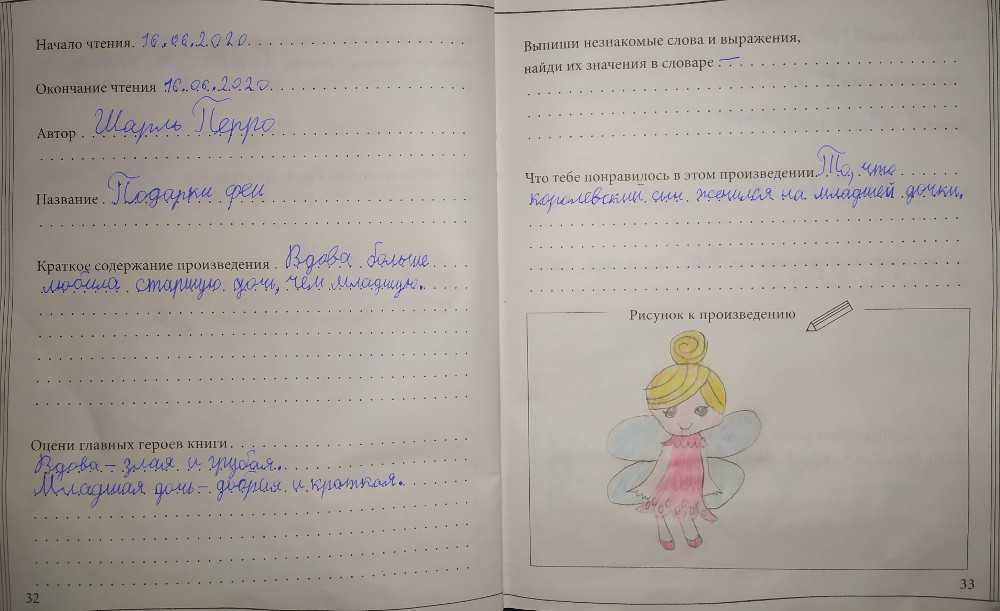 Начало чтения. 16.06.2020.
Окончание чтения 16.06.2020.
Автор. Шарль Перро
Название. Подарки феи
Краткое содержание произведения. Вдова больше
любила старшую дочь, чем младшую.
Оцени главных героев книги
Вдова – злая и грубая.
Младшая дочь – добрая и кроткая.
32
Выпиши незнакомые слова и выражения,
найди их значения в словаре –
Что тебе понравилось в этом произведении. То, что
королевский сын женился на младшей дочки.
Рисунок к произведению
33